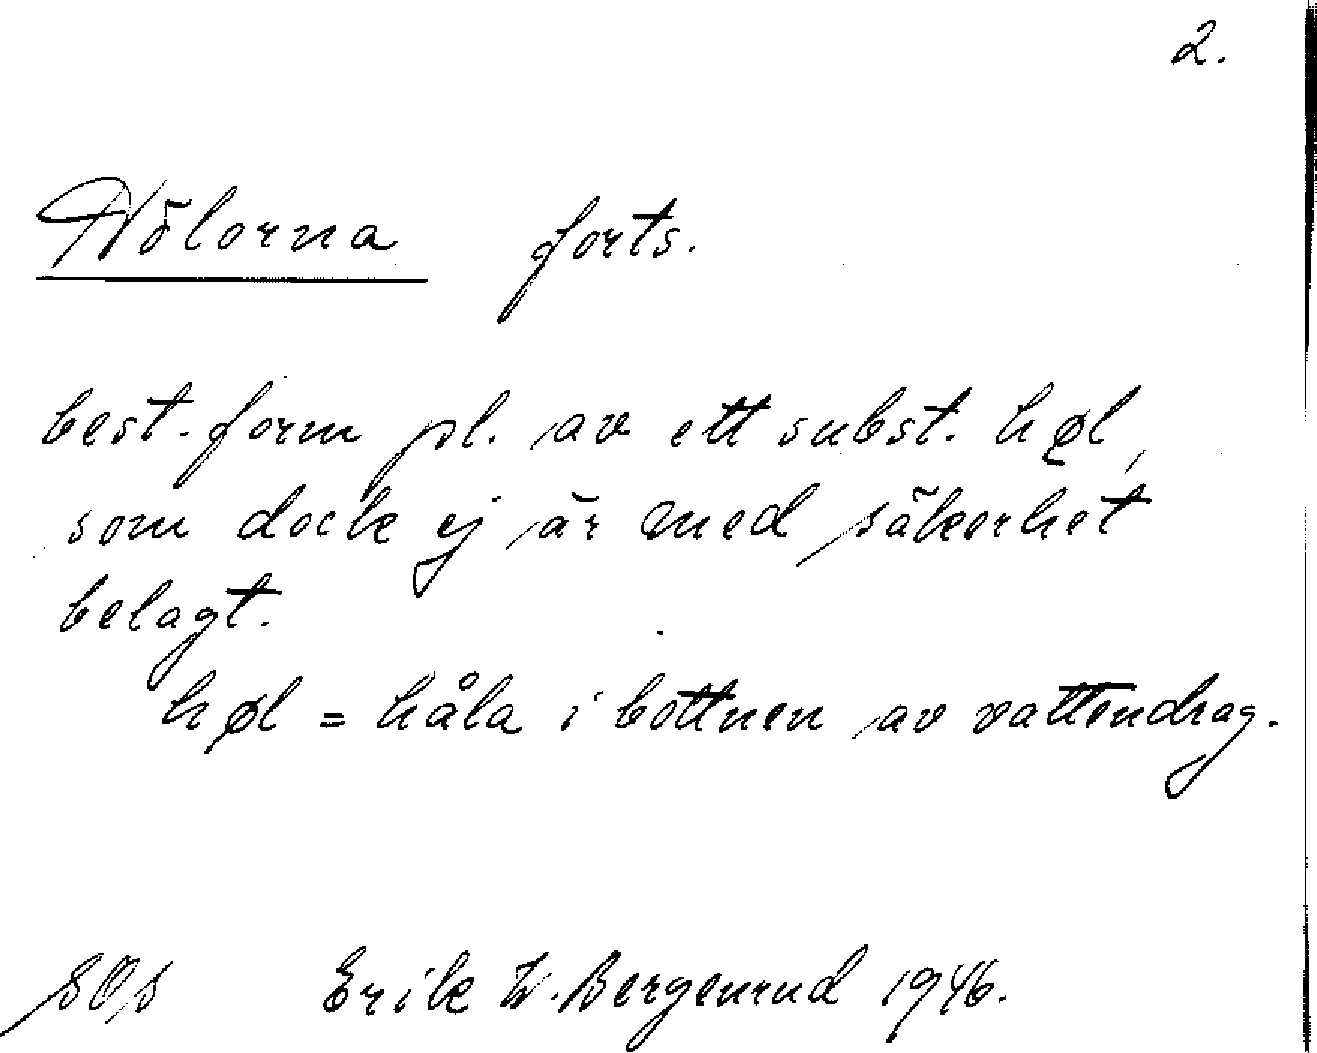 2.
Hölorna forts.
best. form pl. av ett subst. høl,
som dock ej är med säkerhet
belagt.
høl = håla i bottnen av vattendrag.
SOs Erik W. Bergenrud 1946.